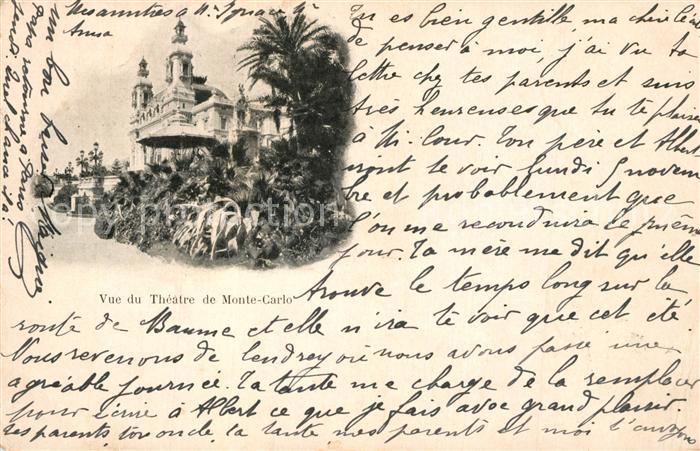 Mes amitiés à Mr
Tu es bien gentille, ma chère
de penser à moi, j'ai vu ta
lettre chez tes parents et suis
très heureuse que tu te plaises
à M. Cour. Ton père et Albert
iront te voir lundi 5 novem
bre et probablement que
l'on me reconduira le même
jour. Ta mère me dit qu'elle
trouve le temps long sur la
route de Baume et elle n'ira te voir que cet été.
Nous revenons de Cendrey où nous avons passé une
agréable journée. Ta tante me charge de la remplacer
pour écrire à Albert ce que je fais avec grand plaisir.
tes parents, ton oncle, la tante mes parents et moi t'envoyons
un bon
Vue du Théâtre de Monte-Carlo